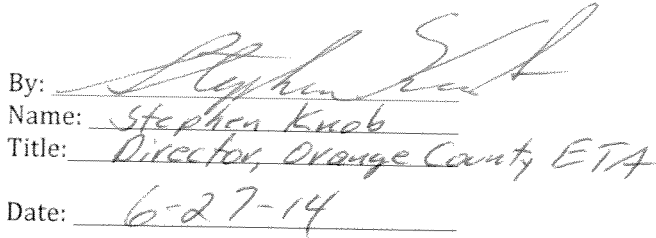 By: Stephen Knob
Name: Stephen Knob
Title: Director, Orange County ETA
Date: 6-27-14